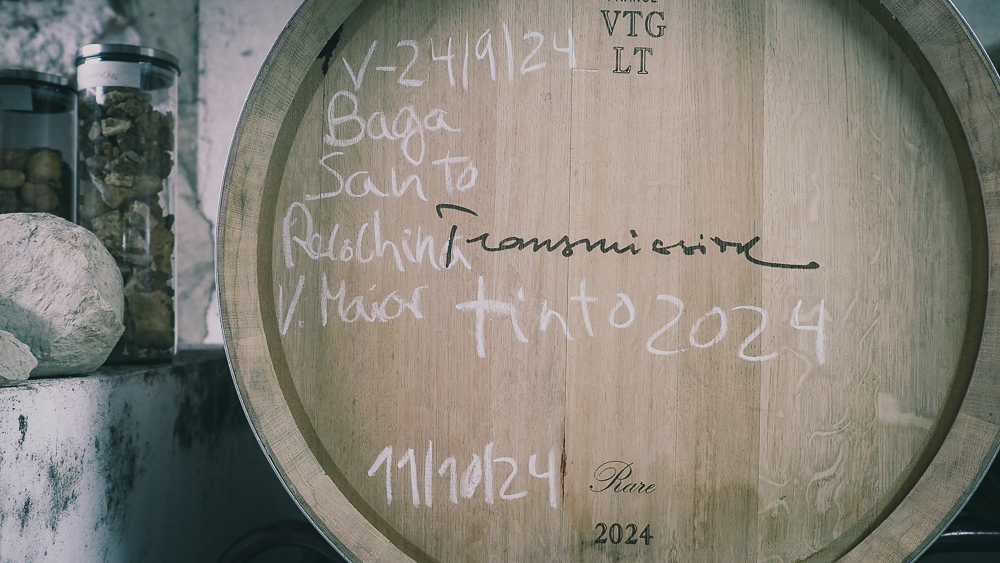 FRANCE
VTG
LT
V-24/9/24
Baga
Santo
Transmission
V. Maior tinto 2024
11/10/24
Rare
2024